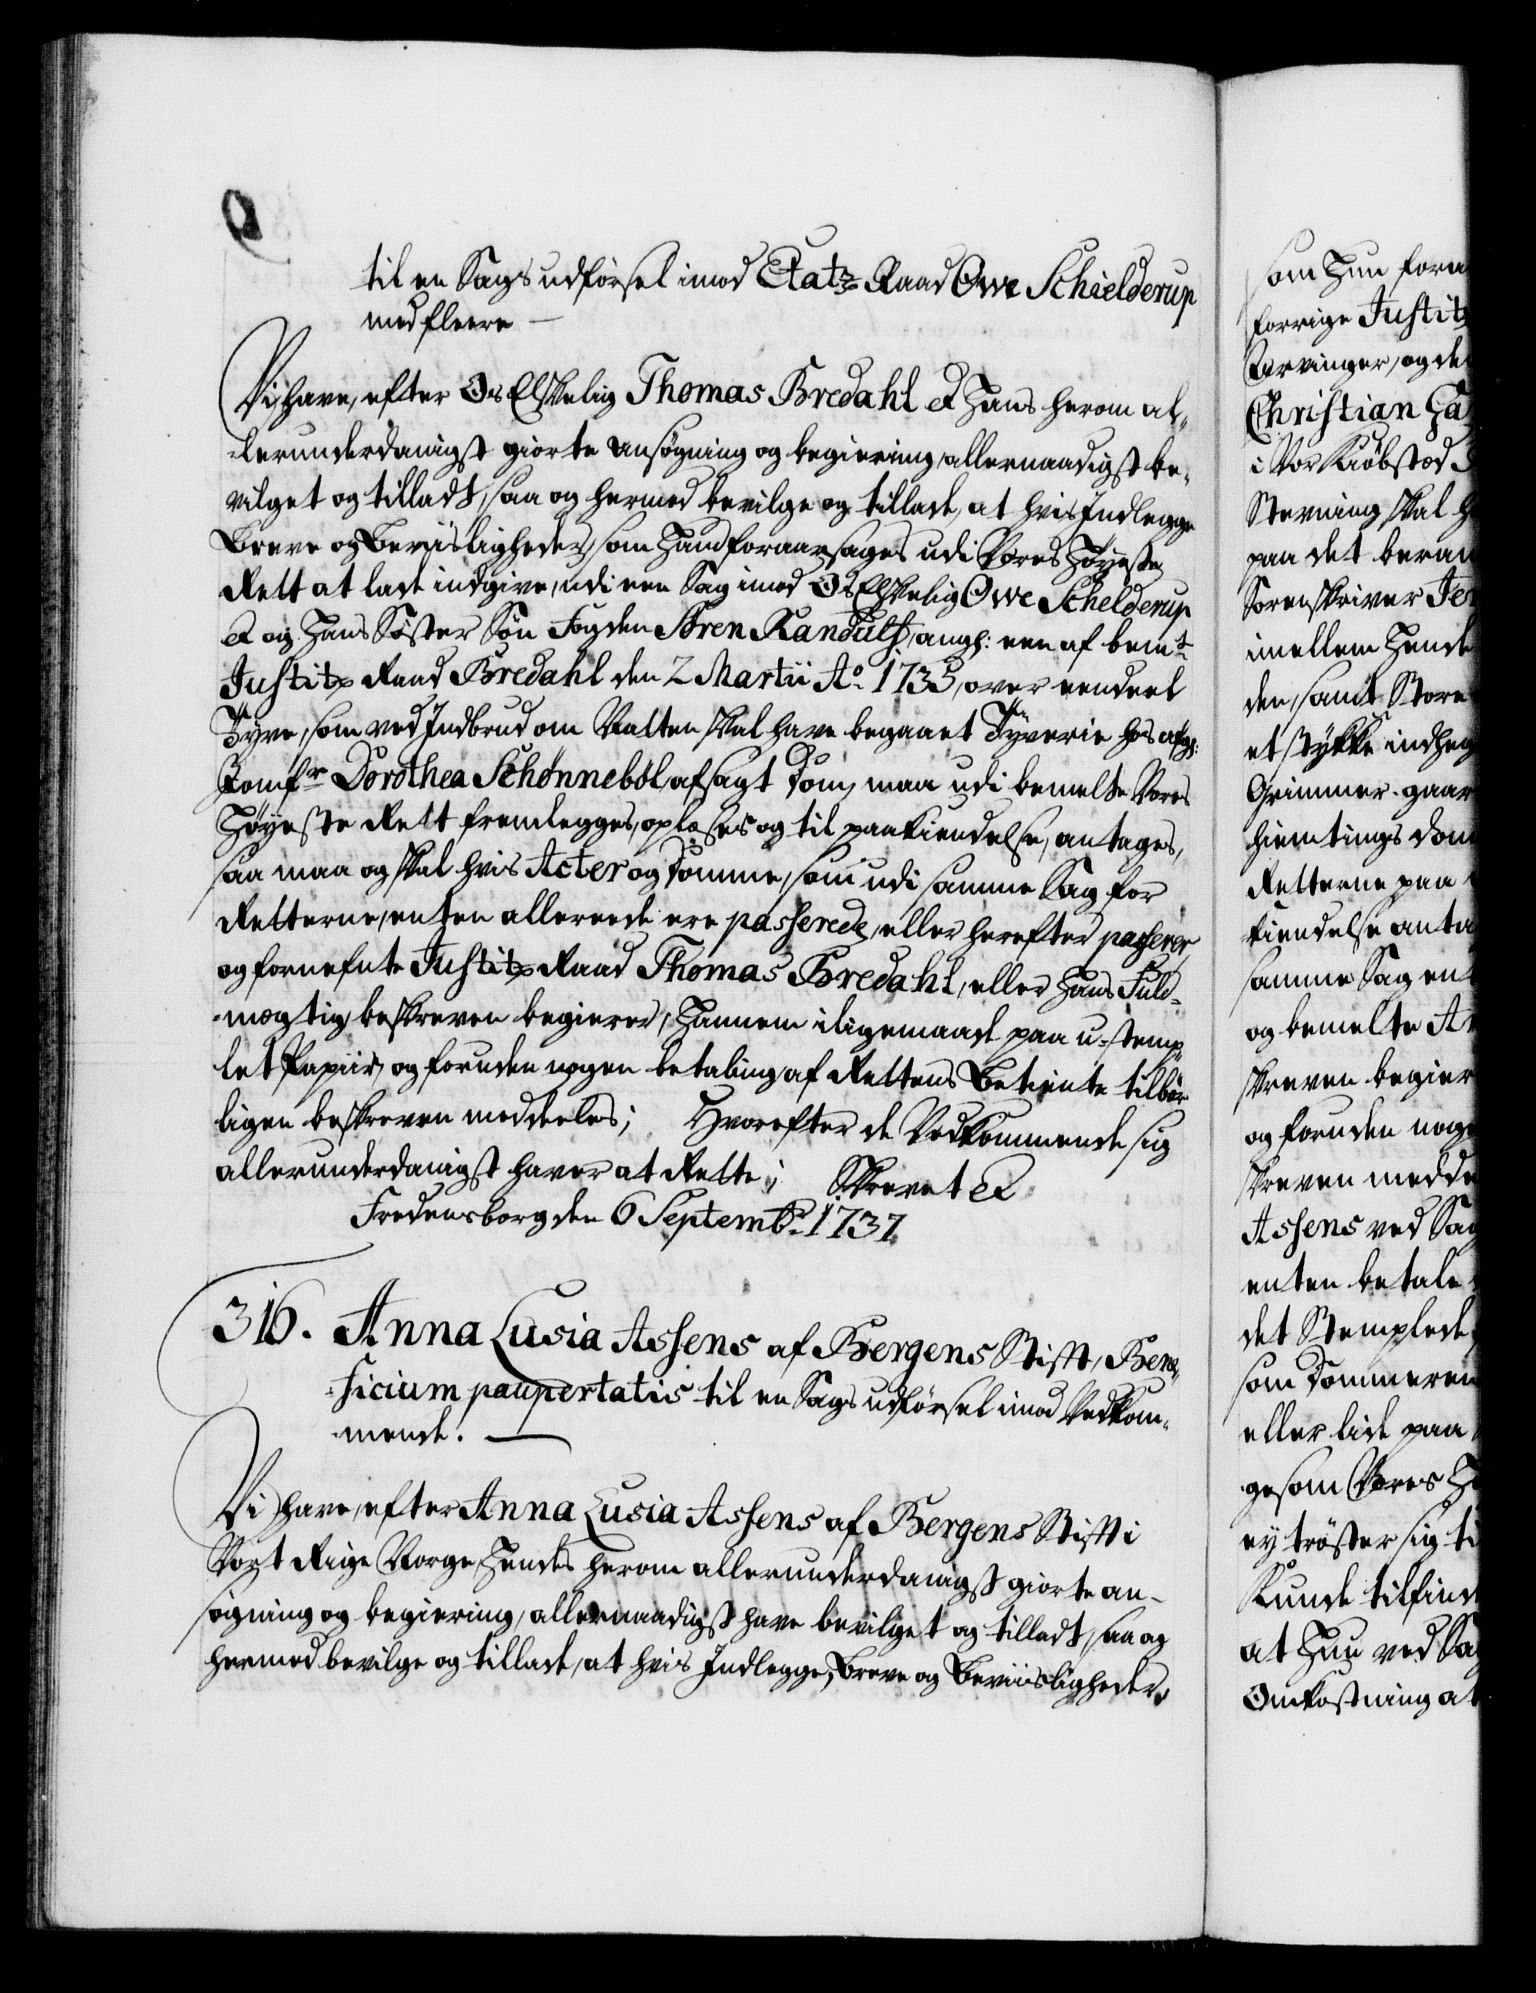 til en Sags udførsel imod Etatz Raad Owe Schielderup
med fleere
Vi have, efter Os Elskelig Thomas Bredahl &c Hans herom al,,
lerunderdanigst giorte Ansøgning og begiering, allernaadigst be,,
vilget og tilladt, saa og hermed bevilge og tillade, at hvis Indlegge
Breve og Beviisligheder, som Hand foraarsages udi Vores Høyeste
Rett at lade indgive, udi een Sag imod Os Elskelig Owe Schelderup
&c og Hans Søster Søn Fogden Sören Randulf, ang: een af bemte
Justitz Raad Bredahl den 2 Martii Ao 1735, over eendeel
Tyve, som ved Indbrud om Natten skal have begaaet Tyverie hos afg:
Jomfr Dorothea Schönneböl, afsagt Dom, maa udi bemelte Vores
Høyeste Rett fremlegges, oplæses og til paakiendelse, antages,
saa maa og skal hvis Acter og Domme, som udi samme Sag for
Retterne, enten allereede ere passerede, eller herefter passerer,
og fornefnte Justitz Raad Thomas Bredahl, eller Hans Fuld-
mægtig beskreven begierer, Hannem iligemaade paa u-stemp,,
let Papiir, og foruden nogen betaling af Rettens Betiente tilbør
ligen beskreven meddeeles; Hvorefter de Vedkommende sig
allerunderdanigst haver at Rette; Skrevet &c
Fredensborg den 6 Septembr 1737
316. Anna Lusia Assens af Bergens Stift, Bene,,
ficium paupertatis til en Sags udførsel imod Vedkom,,
mende.
Vi have, efter Anna Lusia Assens af Bergens Stift i
Vort Rige Norge, Hendes herom allerunderdanigst giorte an-
søgning og begiering, allernaadigst have bevilget og tilladt, saa og
hermed bevilge og tillade, at hvis Indlegge, Breve og Beviisligheder,
som Hun foraa
forrige Justitz
Arvinger, og de
Christian Ha
i Vor Kiøbsted
Stevning skal
paa det beram
Sorenskriver Je
imellem Hende
den, samt Store
et stykke indheg
Grimmer-gaar
hiemtings dom
Retterne paa
kiendelse anta
samme Sag ent
og bemelte A
skreven begier
og foruden noge
skreven medde
Assens ved Sag
enten betale
det Stemplede
som Dommeren
eller lide paa
gesom Vores H
ey trøster sig ti
Kunde tilfind
at Hun ved Sag
Omkostning at